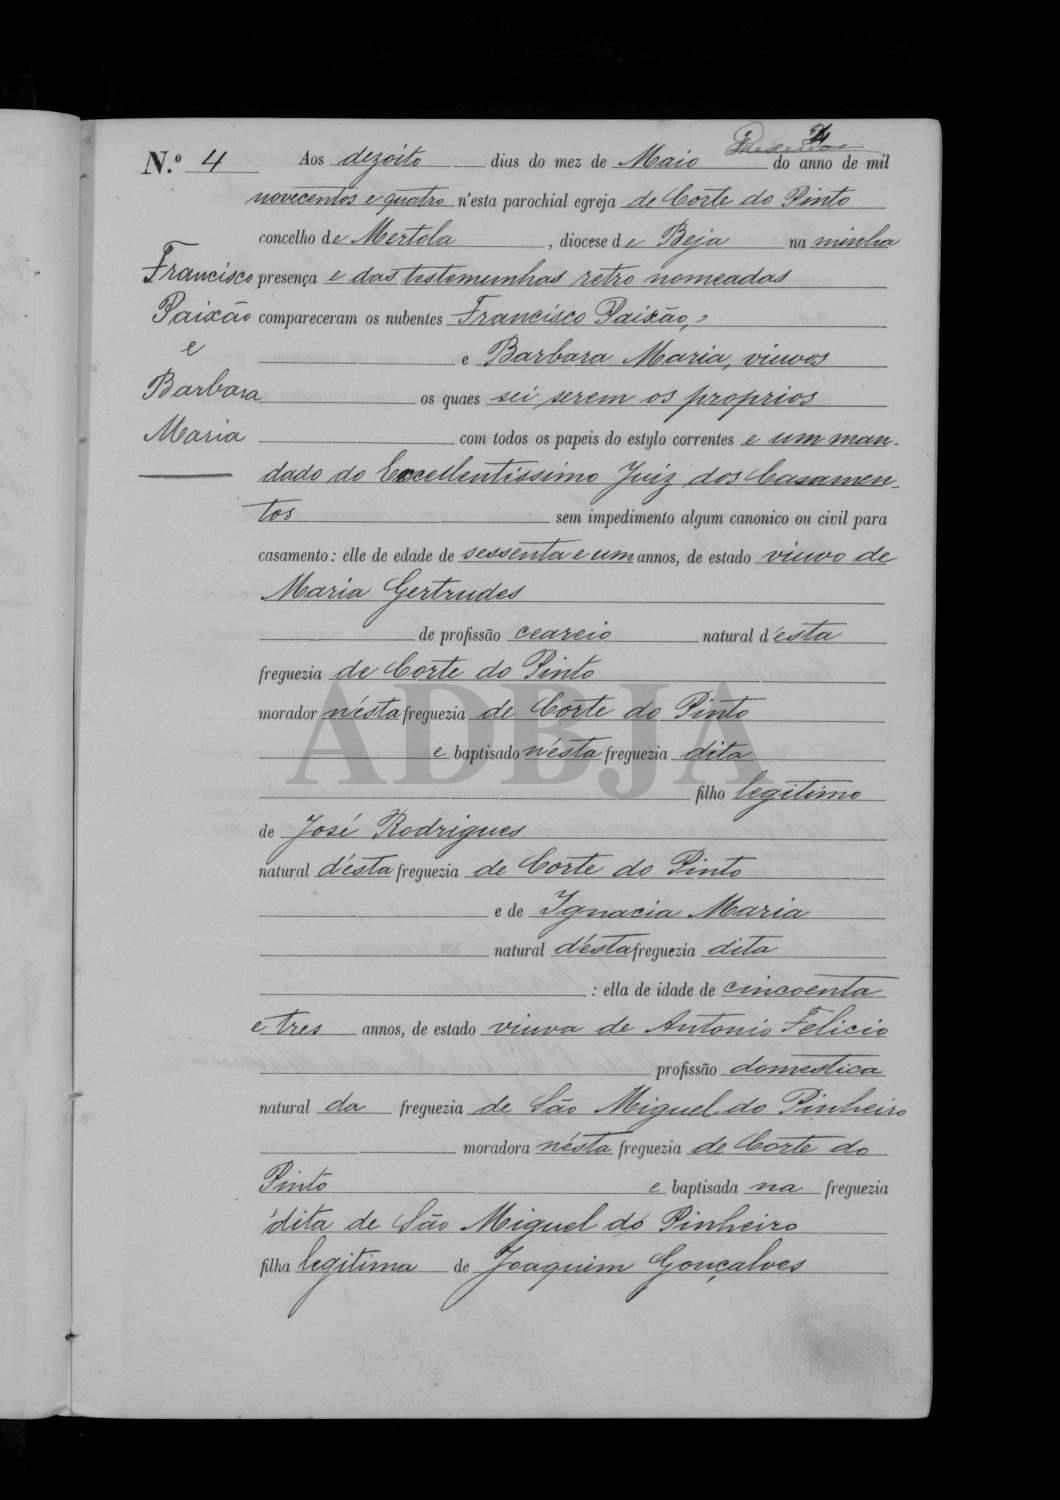 4
N.º 4 Aos dezoito dias do mez de Maio do anno de mil
novecentos e quatro n'esta parochial egreja de Corte do Pinto
concelho de Mertola, diocese de Beja na minha
Francisco presença e das testemunhas retro nomeadas
Paixão compareceram os nubentes Francisco Paixão,
e e Barbara Maria, viuvos
Barbara os quaes sei serem os proprios
Maria com todos os papeis do estylo correntes e um man-
dado do Excellentissimo Juiz dos Casamen-
tos sem impedimento algum canonico ou civil para
casamento: elle de edade de sessenta e um annos, de estado viuvo de
Maria Gertrudes
de profissão ceareio natural d'esta
freguezia de Corte do Pinto
morador n'esta freguezia de Corte do Pinto
e baptisado n'esta freguezia dita
ADBJA
filho legitimo
de José Rodrigues
natural d'esta freguezia de Corte do Pinto
e de Ignacia Maria
natural d'esta freguezia dita
: ella de idade de cincoenta
e tres annos, de estado viuva de Antonio Felicio
profissão domestica
natural da freguezia de São Miguel do Pinheiro
moradora n'esta freguezia de Corte do
Pinto e baptisada na freguezia
dita de São Miguel do Pinheiro
filha legitima de Joaquim Gonçalves